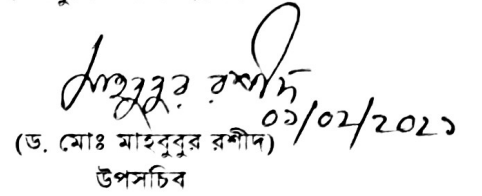 মাহবুবুর রশীদ
০১/০২/২০২১
(ড. মোঃ মাহবুবুর রশীদ)
উপসচিব